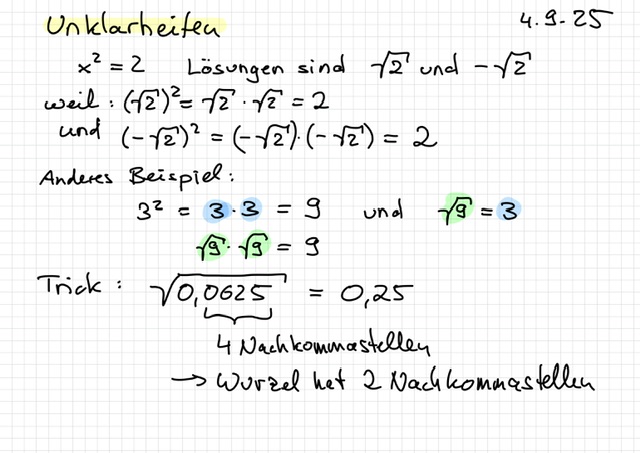 Unklarheiten 4.9.25
x² = 2 Lösungen sind √2 und -√2
weil: (√2)² = √2 · √2 = 2
und (-√2)² = (-√2)·(-√2) = 2
Anderes Beispiel:
3² = 3·3 = 9 und √9 = 3
√9 · √9 = 9
Trick: √0,0625 = 0,25
4 Nachkommastellen
→ Wurzel hat 2 Nachkommastellen